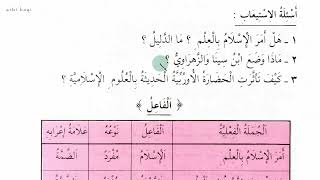 أَسْئِلَةُ الِاسْتِيعَابِ :
١ - هَلْ أَمَرَ الْإِسْلَامُ بِالْعِلْمِ ؟ مَا الدَّلِيلُ ؟
٢ - مَاذَا وَضَعَ ابْنُ سِينَا وَالزَّهْرَاوِيُّ ؟
٣ - كَيْفَ تَأَثَّرَتِ الْحَضَارَةُ الْأُورُبِّيَّةُ الْحَدِيثَةُ بِالْعُلُومِ الْإِسْلَامِيَّةِ ؟
﴿ اَلْفَاعِلُ ﴾
اَلْجُمْلَةُ الْفِعْلِيَّةُ اَلْفَاعِلُ نَوْعُهُ عَلَامَةُ إِعْرَابِهِ
أَمَرَ الْإِسْلَامُ بِالْعِلْمِ اَلْإِسْلَامُ مُفْرَدٌ اَلضَّمَّةُ